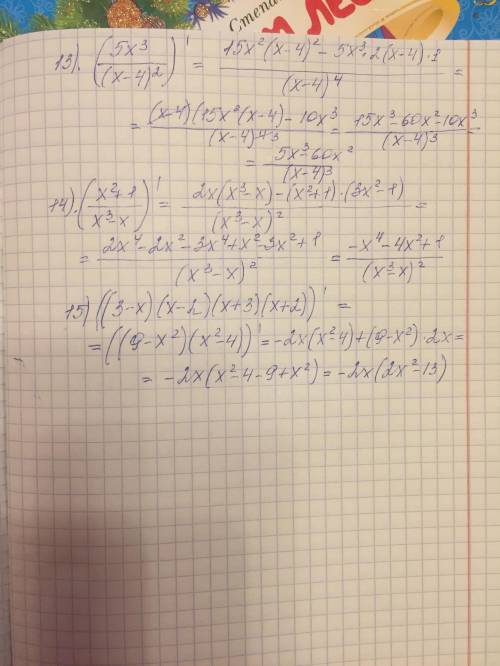 Степа
ЛЕС
13). (5x³/(x-4)²)' = (15x²(x-4)² - 5x³·2(x-4)·1)/(x-4)⁴ =
= ((x-4)(15x²(x-4) - 10x³)/(x-4)⁴ ³ = (15x³-60x²-10x³)/(x-4)³
= (5x³-60x²)/(x-4)³
14). (x²+1/x³-x)' = (2x(x³-x)-(x²+1)·(3x²-1))/(x³-x)² =
= (2x⁴-2x²-3x⁴+x²-3x²+1)/(x³-x)² = (-x⁴-4x²+1)/(x³-x)²
15) ((3-x)(x-2)(x+3)(x+2))' =
= ((9-x²)(x²-4))' = -2x(x²-4)+(9-x²)·2x =
= -2x(x²-4-9+x²) = -2x(2x²-13)